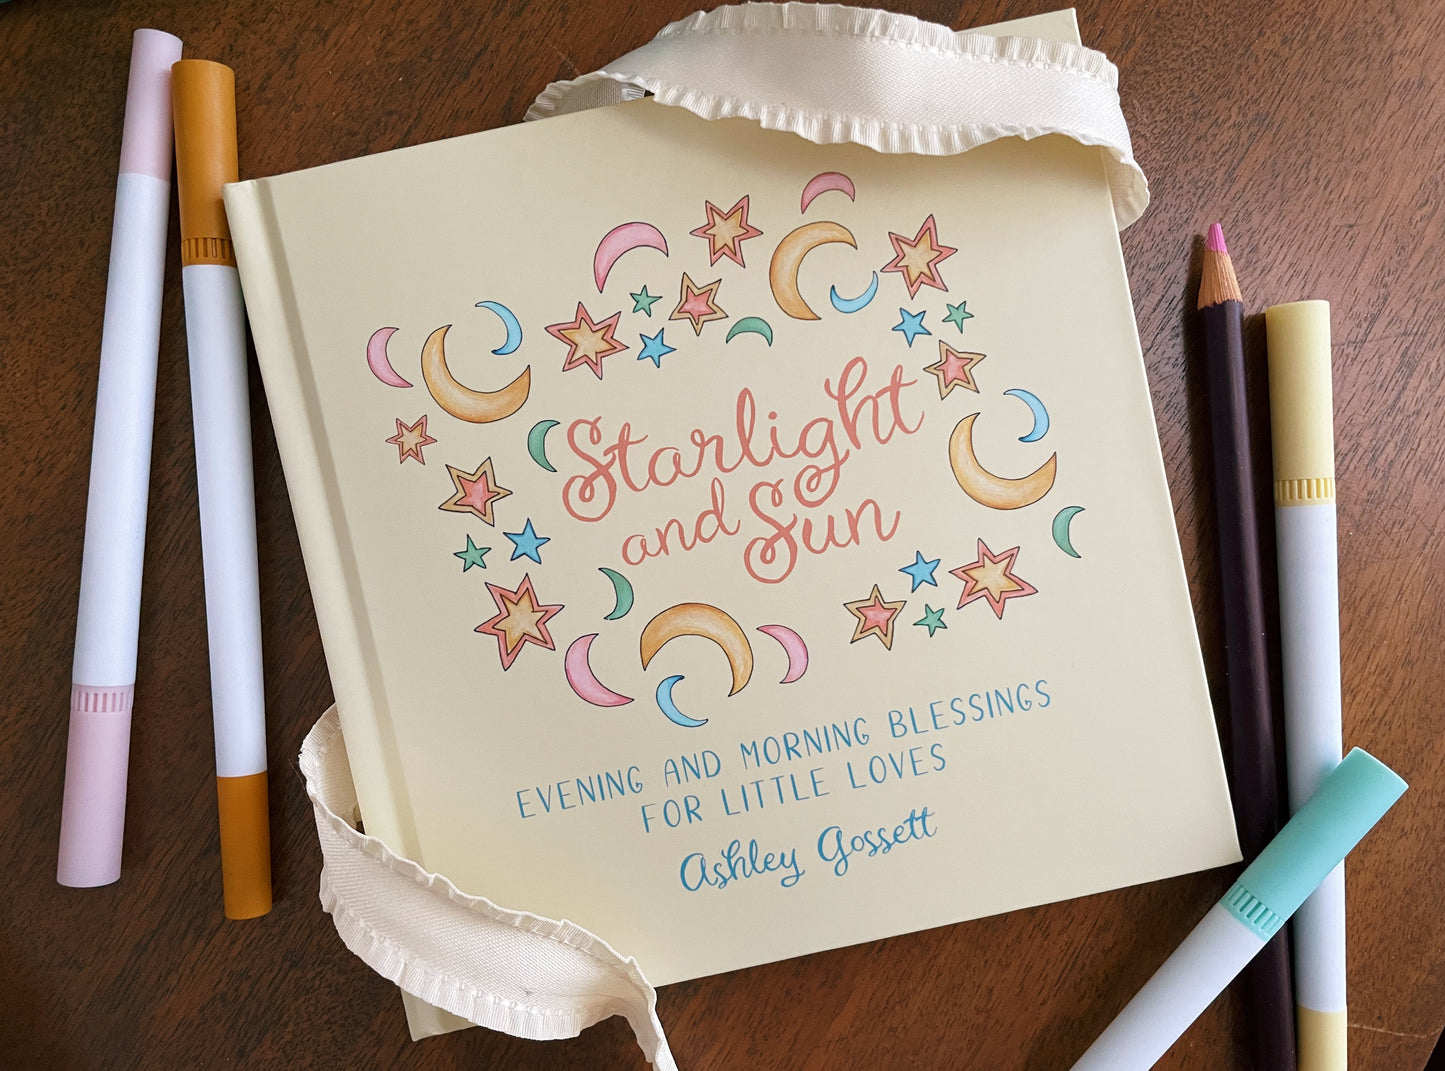 Starlight
and Sun
EVENING AND MORNING BLESSINGS
FOR LITTLE LOVES
Ashley Gossett